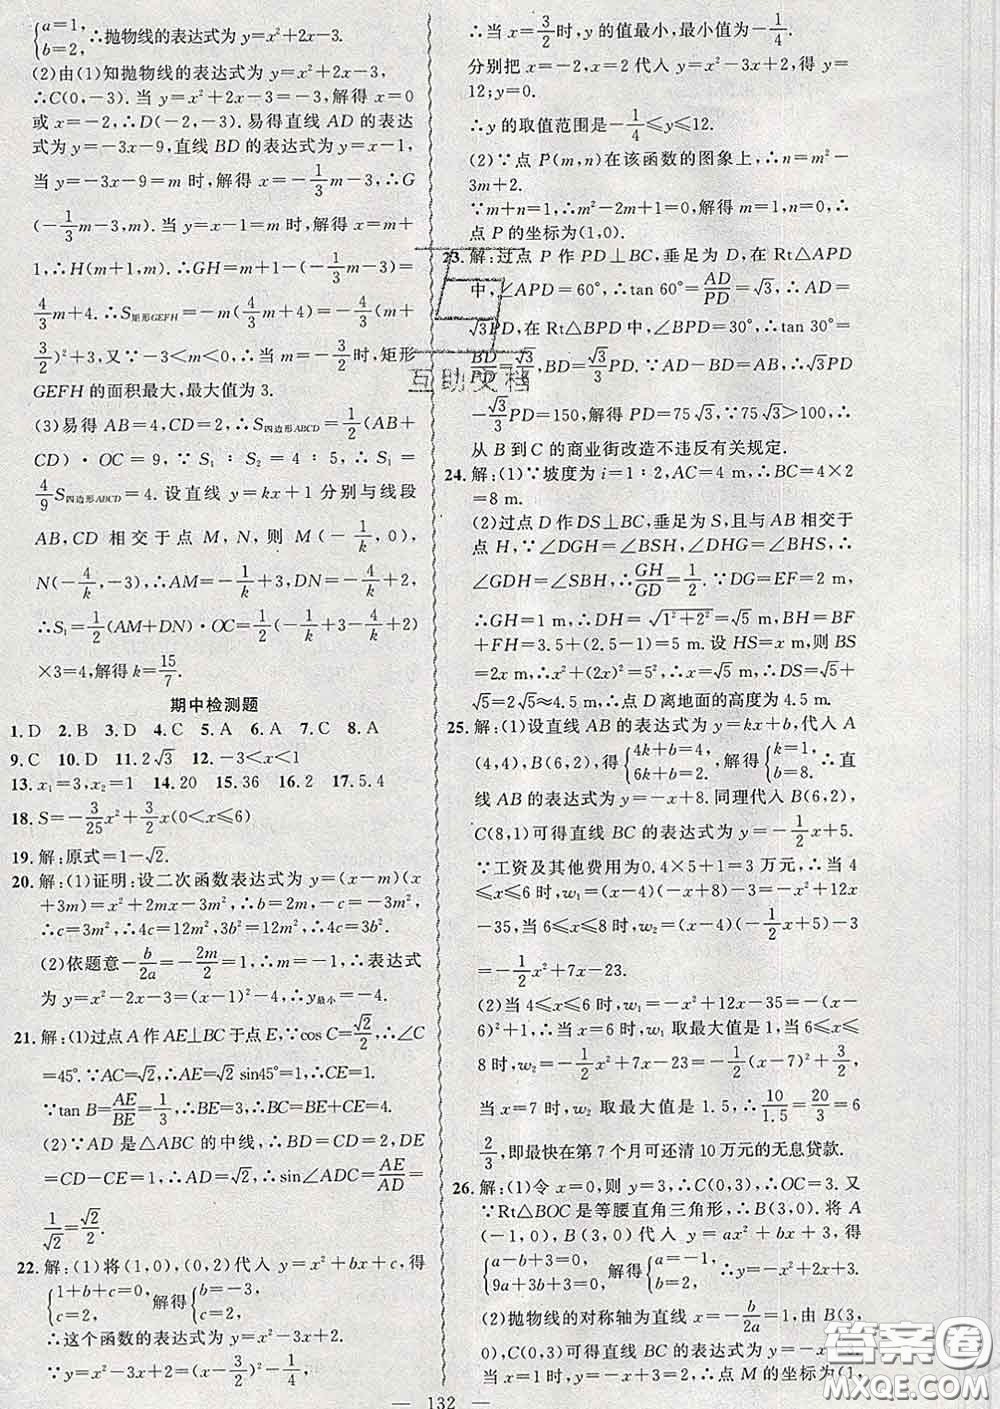 {a=1, b=2, ∴抛物线的表达式为 y=x²+2x-3.
(2)由(1)知抛物线的表达式为 y=x²+2x-3,
∴C(0,-3). 当 y=x²+2x-3=-3,解得 x=0
或 x=-2,∴D(-2,-3). 易得直线 AD 的表达
式为 y=-3x-9,直线 BD 的表达式为 y=x-1,
当 y=-3x-9=m 时,解得 x=-1/3m-3,∴G
(-1/3m-3,m). 当 y=x-1=m 时,解得 x=m+
1,∴H(m+1,m). ∴GH=m+1-(-1/3m-3)=
4/3m+4. ∴S矩形GEFH=-m(4/3m+4)=-4/3(m+
3/2)²+3,又∵-3<m<0,∴当 m=-3/2时,矩形
GEFH 的面积最大,最大值为 3.
(3)易得 AB=4,CD=2,∴S四边形ABCD=1/2(AB+
CD)·OC=9,∵S₁:S₂=4:5,∴S₁=
4/9S四边形ABCD=4. 设直线 y=kx+1 分别与线段
AB,CD 相交于点 M,N,则 M(-1/k,0),
N(-4/k,-3),∴AM=-1/k+3,DN=-4/k+2,
∴S₁=1/2(AM+DN)·OC=1/2(-1/k+3-4/k+2)
×3=4,解得 k=15/7.
期中检测题
1.D 2.B 3.D 4.C 5.A 6.A 7.C 8.A
9.C 10.D 11.2√3 12.-3<x<1
13.x₁=3,x₂=1 14.20 15.36 16.2 17.5.4
18.S=-3/25x²+3/2x(0<x≤6)
19.解:原式=1-√2.
20.解:(1)证明:设二次函数表达式为 y=(x-m)(x
+3m)=x²+2mx-3m²,∴b=2m,-c=-3m²,
∴c=3m²,4c=12m²,3b²=12m²,∴4c=3b².
(2)依题意-b/2a=-2m/2=1,∴m=-1,∴表达式
为 y=x²-2x-3=(x-1)²-4,∴y最小=-4.
21.解:(1)过点 A 作 AE⊥BC 于点 E,∵cos C=√2/2,∴∠C
=45°.∵AC=√2,∴AE=√2 sin45°=1,∴CE=1.
∵tan B=AE/BE=1/3,∴BE=3,∴BC=BE+CE=4.
(2)∵AD 是△ABC 的中线,∴BD=CD=2,DE
=CD-CE=1,∴AD=√2,∴sin∠ADC=AE/AD=
1/√2=√2/2.
22.解:(1)将(1,0),(0,2)代入 y=x²+bx+c,得
{1+b+c=0, c=2, 解得{b=-3, c=2,
∴这个函数的表达式为 y=x²-3x+2.
∵y=x²-3x+2=(x-3/2)²-1/4,
∴当 x=3/2时,y 的值最小,最小值为-1/4.
分别把 x=-2,x=2 代入 y=x²-3x+2,得 y=
12;y=0.
∴y 的取值范围是-1/4≤y≤12.
(2)∵点 P(m,n)在该函数的图象上,∴n=m²-
3m+2.
∵m+n=1,∴m²-2m+1=0,解得 m=1,n=0,∴
点 P 的坐标为(1,0).
23.解:过点 P 作 PD⊥BC,垂足为 D,在 Rt△APD
中,∠APD=60°,∴tan 60°=AD/PD=√3,∴AD=
√3PD,在 Rt△BPD 中,∠BPD=30°,∴tan 30°=
BD/PD=√3/3,∴BD=√3/3PD. ∵AD-BD=AB,∴√3PD
-√3/3PD=150,解得 PD=75√3,∵75√3>100,∴
从 B 到 C 的商业街改造不违反有关规定.
24.解:(1)∵坡度为 i=1:2,AC=4 m,∴BC=4×2
=8 m.
(2)过点 D 作 DS⊥BC,垂足为 S,且与 AB 相交于
点 H,∵∠DGH=∠BSH,∠DHG=∠BHS,∴
∠GDH=∠SBH,∴GH/GD=1/2. ∵DG=EF=2 m,
∴GH=1 m,∴DH=√(1²+2²)=√5 m,BH=BF
+FH=3.5+(2.5-1)=5 m. 设 HS=x m,则 BS
=2x m,∴x²+(2x)²=5²,∴x=√5 m,∴DS=√5+
√5=2√5≈4.5 m,∴点 D 离地面的高度为 4.5 m.
25.解:(1)设直线 AB 的表达式为 y=kx+b,代入 A
(4,4),B(6,2)得{4k+b=4, 6k+b=2, 解得{k=-1, b=8. ∴直
线 AB 的表达式为 y=-x+8. 同理代入 B(6,2),
C(8,1)可得直线 BC 的表达式为 y=-1/2x+5.
∵工资及其他费用为0.4×5+1=3 万元,∴当 4
≤x≤6 时,w₁=(x-4)(-x+8)-3=-x²+12x
-35,当 6≤x≤8 时,w₂=(x-4)(-1/2x+5)-3=
-1/2x²+7x-23.
(2)当 4≤x≤6 时,w₁=-x²+12x-35=-(x-
6)²+1,∴当 x=6 时,w₁ 取最大值是 1,当 6≤x≤
8 时,w₂=-1/2x²+7x-23=-1/2(x-7)²+3/2,
当 x=7 时,w₂ 取最大值是 1.5,∴10/1.5=20/3=6
2/3,即最快在第 7 个月可还清 10 万元的无息贷款.
26.解:(1)令 x=0,则 y=3,∴C(0,3),∴OC=3. 又
∵Rt△BOC 是等腰直角三角形,∴B(3,0). 将 A
(-1,0),B(3,0)代入 y=ax²+bx+3,得
{a-b+3=0, 9a+3b+3=0, 解得{a=-1, b=2, ∴y=-x²+2x+3.
(2)抛物线的对称轴为直线 x=-b/2a=1,由 B(3,
0),C(0,3)得直线 BC 为 y=-x+3. ∴点 M 的坐标为(1,
— 132 —
互助文档
答案圈
MXQE.COM